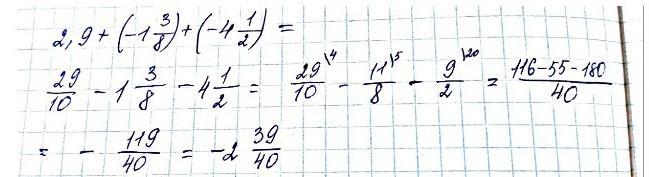 2,9 + (-1 3/8) + (-4 1/2) =
29/10 - 1 3/8 - 4 1/2 = 29/10 \4 - 11/8 \5 - 9/2 \20 = 116-55-180/40
= - 119/40 = -2 39/40